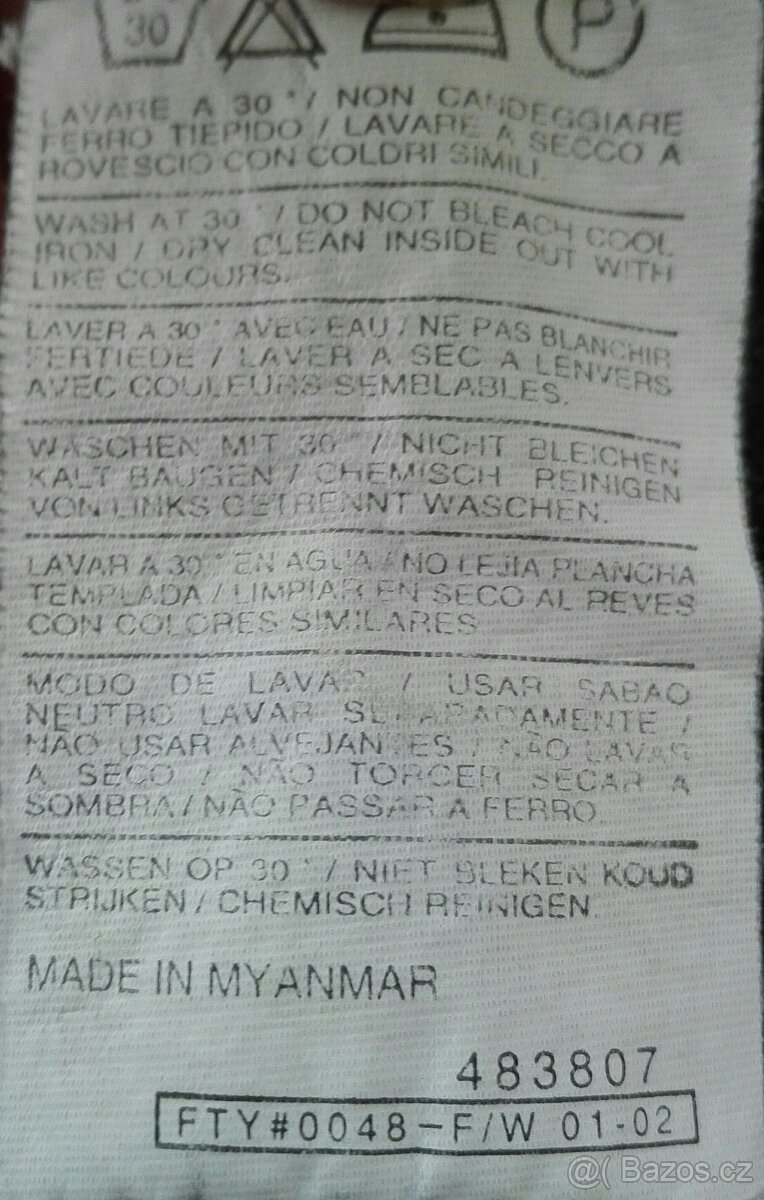 30 P
LAVARE A 30 ° / NON CANDEGGIARE
FERRO TIEPIDO / LAVARE A SECCO A
ROVESCIO CON COLDRI SIMILI.
WASH AT 30 ° / DO NOT BLEACH COOL
IRON / DRY CLEAN INSIDE OUT WITH
LIKE COLOURS.
LAVER A 30 ° AVEC EAU / NE PAS BLANCHIR
FERTIEDE / LAVER A SEC A LENVERS
AVEC COULEURS SEMBLABLES.
WASCHEN MIT 30 ° / NICHT BLEICHEN
KALT BAUGEN / CHEMISCH REINIGEN
VON LINKS GETRENNT WASCHEN.
LAVAR A 30 ° EN AGUA / NO LEJIA PLANCHA
TEMPLADA / LIMPIAR EN SECO AL REVES
CON COLORES SIMILARES
MODO DE LAVAR / USAR SABAO
NEUTRO LAVAR SEPARADAMENTE /
NÃO USAR ALVEJANTES / NÃO LAVAR
A SECO / NÃO TORCER SECAR A
SOMBRA / NÃO PASSAR A FERRO.
WASSEN OP 30 ° / NIET BLEKEN KOUD
STRIJKEN / CHEMISCH REINIGEN
MADE IN MYANMAR
483807
FTY#0048-F/W 01-02
@( Bazos.cz